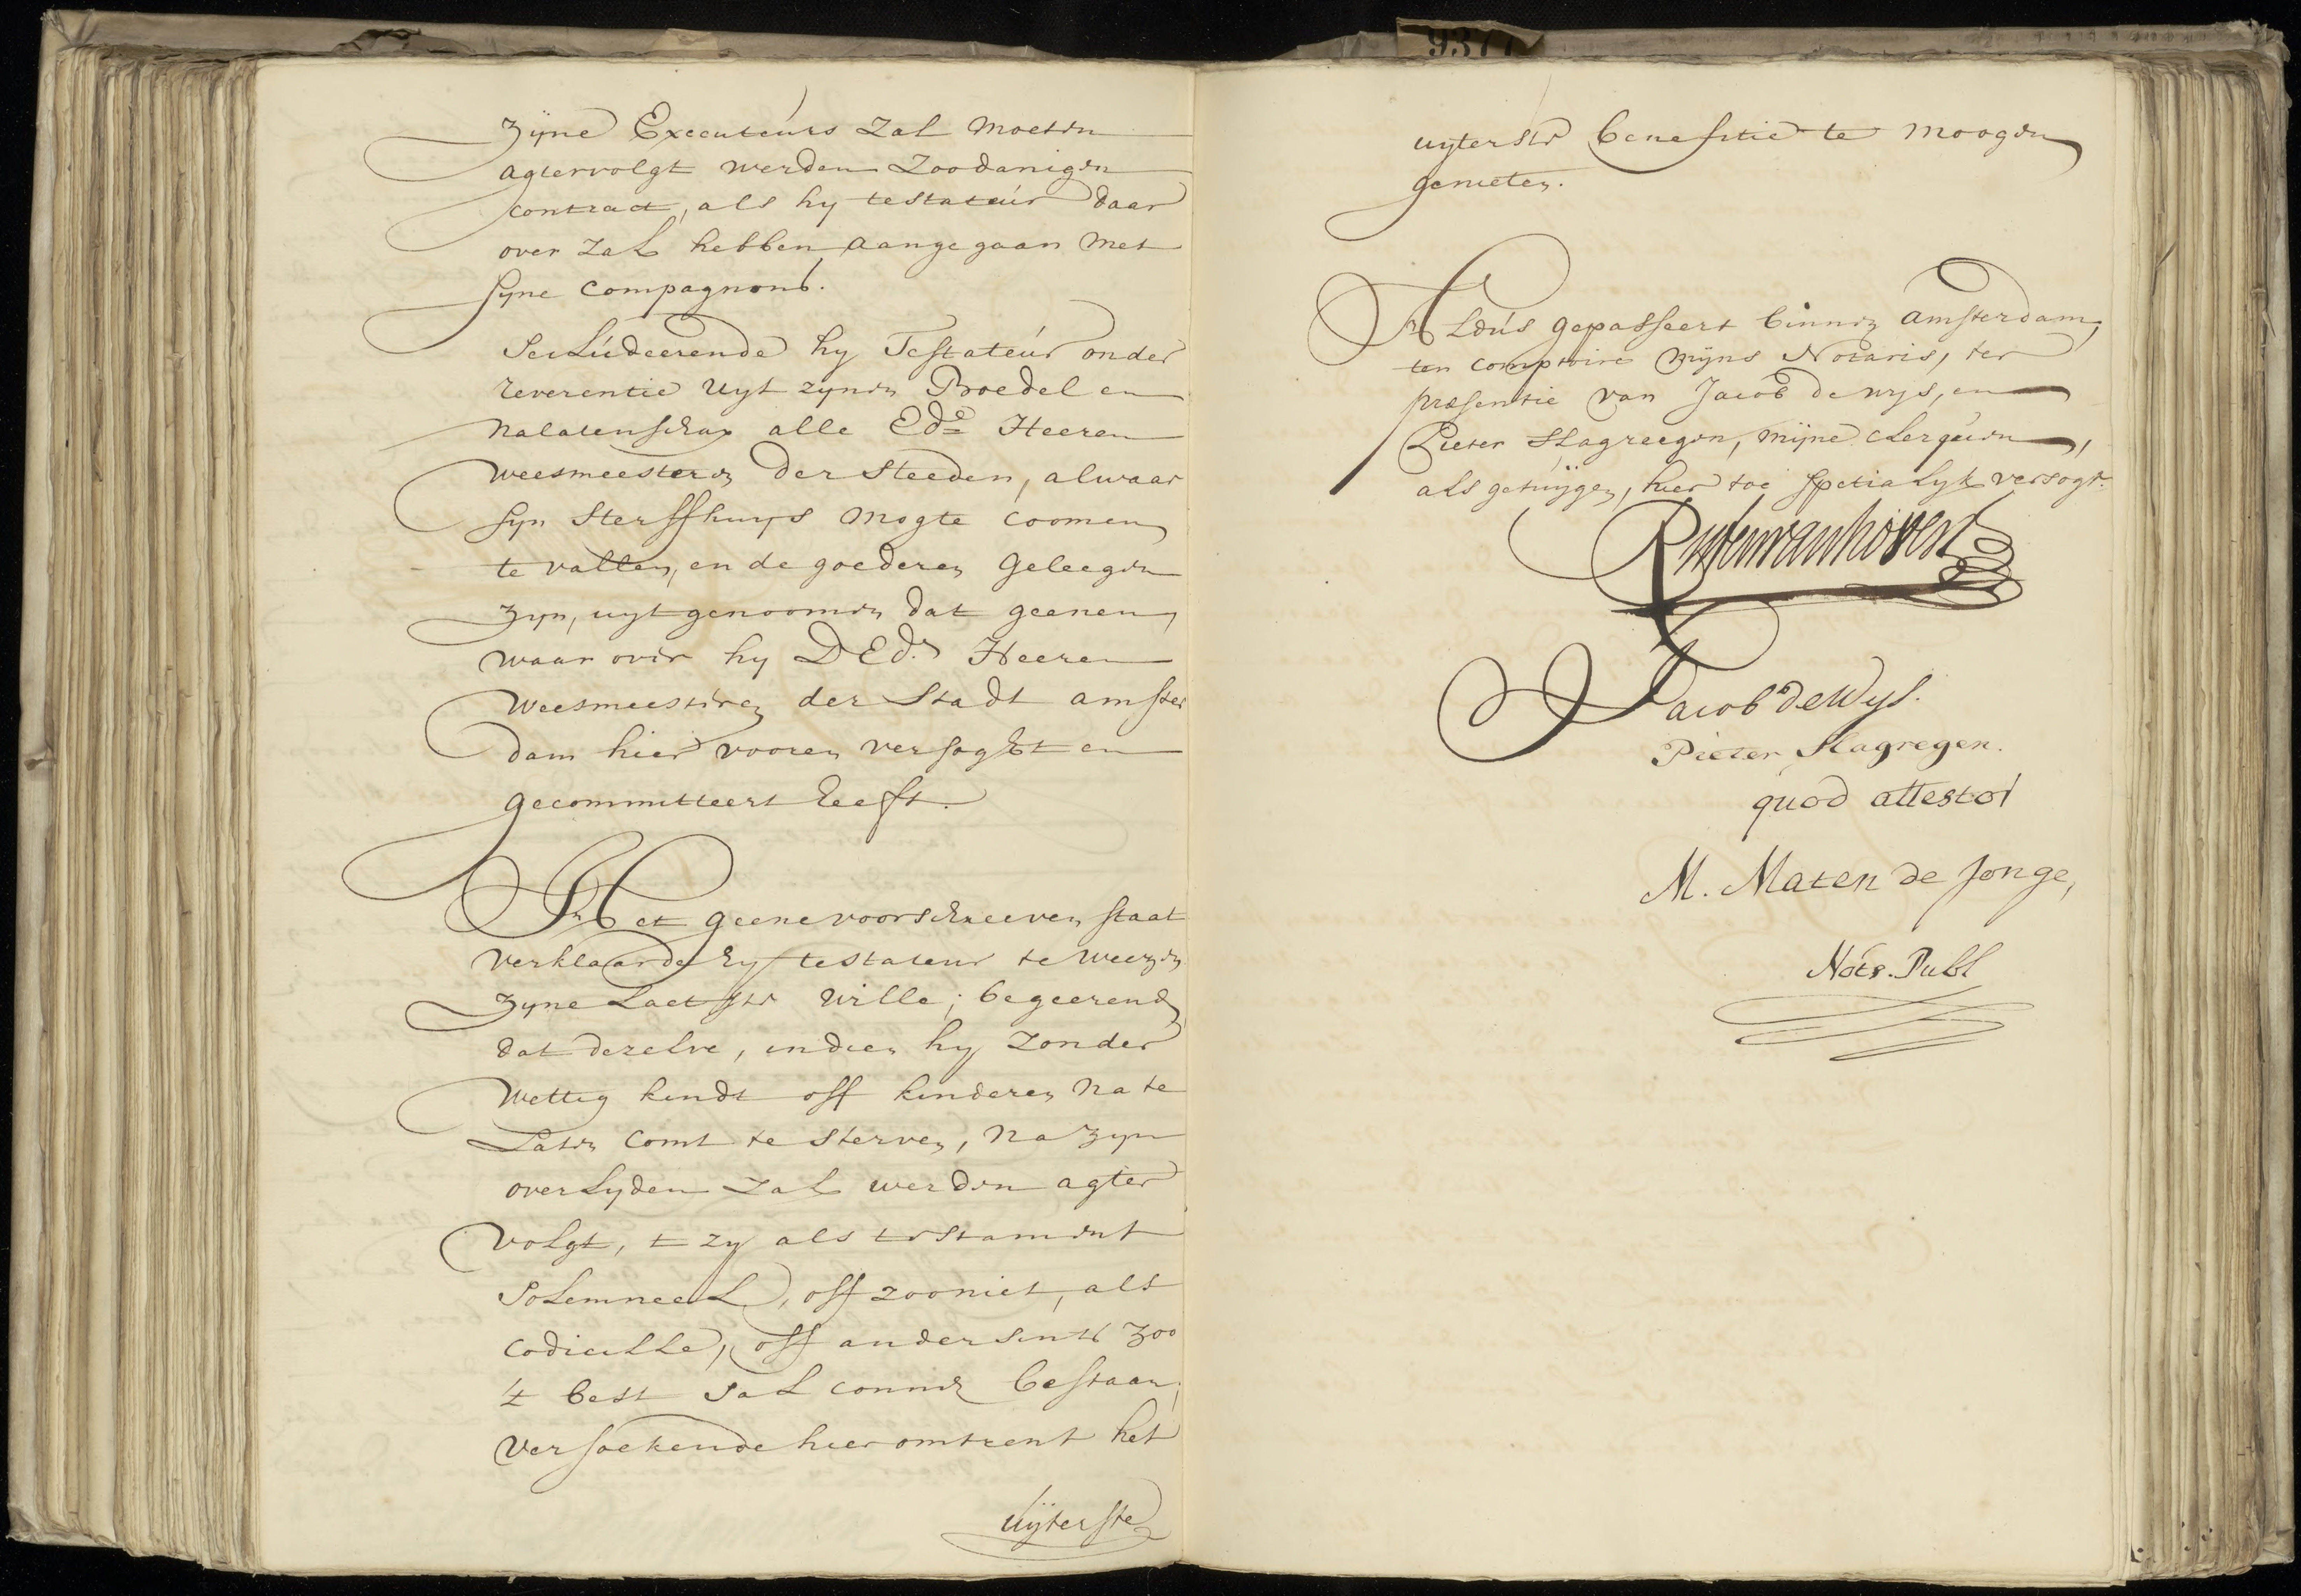 Zijne Executeurs Zal moeten
agtervolgt werden Zoodanigen
contract, als hy testateur daar
over Zal hebben aangegaan met
syne Compagnons.
Secludeerende hy Testateur onder
reverentie Uyt zynen Boedel en
Nalatenschap alle Ede Heeren
Weesmeesteren der Steeden, alwaar
syn Sterffhuys mogte coomen
te vallen, en de goederen geleegen
zyn, uytgenoomen dat geenen,
waar over hy D Ed.s Heeren
Weesmeesteren der Stadt amster
dam hier vooren versoght en
gecommitteert heeft.
Het geene voorschreeven staat
verklaarde hy testateur te weezen
zyne Laetste wille; begeerende
dat dezelve, indien hy Zonder
Wettig kindt off kinderen na te
Laten comt te sterven, na zyn
overlyden zal werden agter
volgt, t zy als testament
Solemneel, off zoo niet, als
Codicille, off andersints zoo
't best sal connen bestaan,
versoekende hier omtrent het
uÿterste
9377
uyterste benefitie te moogen
genieten.
Aldus gepasseert binnen amsterdam,
ten comptoire mijns Notaris, ter
præsentie van Jacob de wys, en
Pieter Slagreegen, mijne clerquen,
als getuÿgen, hier toe spetialyk versogt.
Jacob de Wys.
Pieter Slagregen.
quod attestor
M. Maten de Jonge,
Nots. Publ